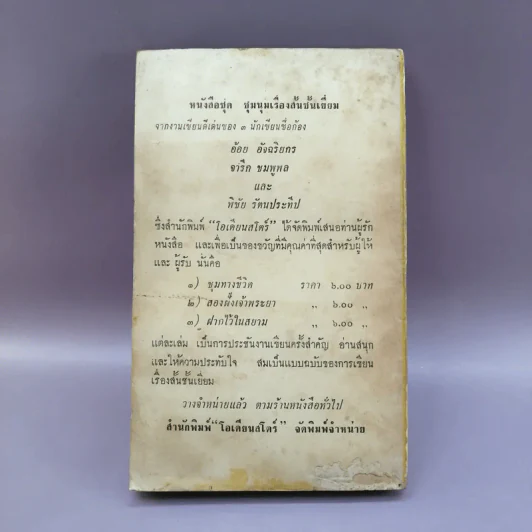 หนังสือชุด ชุมนุมเรื่องสั้นชั้นเยี่ยม
จากงานเขียนดีเด่นของ ๓ นักเขียนชื่อก้อง
อ้อย อัจฉริยกร
จารึก ชมพูพล
และ
พิชัย รัตนประทีป
ซึ่งสำนักพิมพ์ "โอเดียนสโตร์" ได้จัดพิมพ์เสนอท่านผู้รัก
หนังสือ และเพื่อเป็นของขวัญที่มีคุณค่าที่สุดสำหรับผู้ให้
และ ผู้รับ นั่นคือ
๑) ชุมทางชีวิต ราคา ๖.๐๐ บาท
๒) สองฝั่งเจ้าพระยา ,, ๖.๐๐ ,,
๓) ฝากไว้ในสยาม ,, ๖.๐๐ ,,
แต่ละเล่ม เป็นการประชันงานเขียนครั้งสำคัญ อ่านสนุก
และให้ความประทับใจ สมเป็นแบบฉบับของการเขียน
เรื่องสั้นชั้นเยี่ยม
วางจำหน่ายแล้ว ตามร้านหนังสือทั่วไป
สำนักพิมพ์ "โอเดียนสโตร์" จัดพิมพ์จำหน่าย